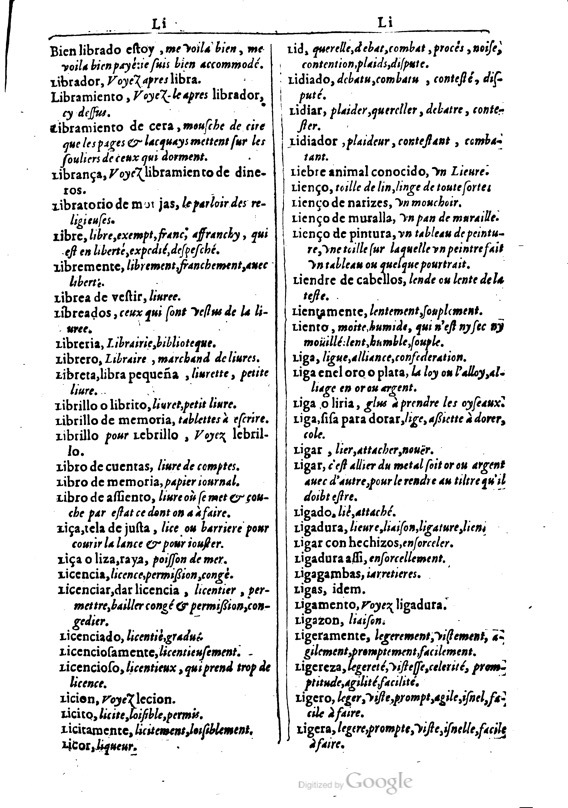 Li
Bien librado estoy, me voila bien, me
voila bien payé: ie suis bien accommodé.
Librador, Voyez apres libra.
Libramiento, Voyez-le apres librador,
cy dessus.
Libramiento de cera, mousche de cire
que les pages & lacquays mettent sur les
souliers de ceux qui dorment.
Librança, Voyez libramiento de dine-
ros.
Libratorio de monjas, le parloir des re-
ligieuses.
Libre, libre, exempt, franc, affranchy, qui
est en liberté, expedié, despesché.
Libremente, librement, franchement, auec
liberté.
Librea de vestir, liuree.
Libreados, ceux qui sont vestus de la li-
uree.
Libreria, Librairie, biblioteque.
Librero, Libraire, marchand de liures.
Libreta, libra pequeña, liurette, petite
liure.
Librillo o librito, liuret, petit liure.
Librillo de memoria, tablettes à escrire.
Librillo por Lebrillo, Voyez lebril-
lo.
Libro de cuentas, liure de comptes.
Libro de memoria, papier iournal.
Libro de assiento, liure où se met & cou-
che par estat ce dont on a à faire.
Liça, tela de justa, lice ou barriere pour
courir la lance & pour iouster.
Liça o liza, raya, poisson de mer.
Licencia, licence, permißion, congé.
Licenciar, dar licencia, licentier, per-
mettre, bailler congé & permißion, con-
gedier.
Licenciado, licentié, gradué.
Licenciosamente, licentieusement.
Licencioso, licentieux, qui prend trop de
licence.
Licion, Voyez lecion.
Licito, licite, loisible, permis.
Licitamente, licitement, loisiblement.
Licor, liqueur.
Li
Lid, querelle, debat, combat, procés, noise,
contention, plaids, dispute.
Lidiado, debatu, combatu, contesté, dis-
puté.
Lidiar, plaider, quereller, debatre, conte-
ster.
Lidiador, plaideur, contestant, comba-
tant.
Liebre animal conocido, vn Lieure.
Lienço, toille de lin, linge de toute sorte.
Lienço de narizes, vn mouchoir.
Lienço de muralla, vn pan de muraille.
Lienço de pintura, vn tableau de peintu-
re, vne toille sur laquelle vn peintre fait
vn tableau ou quelque pourtrait.
Liendre de cabellos, lende ou lente de la
teste.
Lientamente, lentement, souplement.
Liento, moite, humide, qui n'est ny sec ny
moüillé: lent, humble, souple.
Liga, ligue, alliance, confederation.
Liga en el oro o plata, la loy ou l'alloy, al-
liage en or ou argent.
Liga o liria, glus à prendre les oyseaux.
Liga, sisa para dorar, lige, aßiette à dorer,
cole.
Ligar, lier, attacher, nouër.
Ligar, c'est allier du metal soit or ou argent
auec d'autre, pour le rendre au tiltre qu'il
doibt estre.
Ligado, lié, attaché.
Ligadura, lieure, liaison, ligature, lien.
Ligar con hechizos, ensorceler.
Ligadura assi, ensorcellement.
Ligagambas, iarretieres.
Ligas, idem.
Ligamento, Voyez ligadura.
Ligazon, liaison.
Ligeramente, legerement, vistement, a-
gilement, promptement, facilement.
Ligereza, legereté, vistesse, celerité, prom-
ptitude, agilité, facilité.
Ligero, leger, viste, prompt, agile, isnel, fa-
cile à faire.
Ligera, legere, prompte, viste, isnelle, facile
à faire.
Digitized by Google